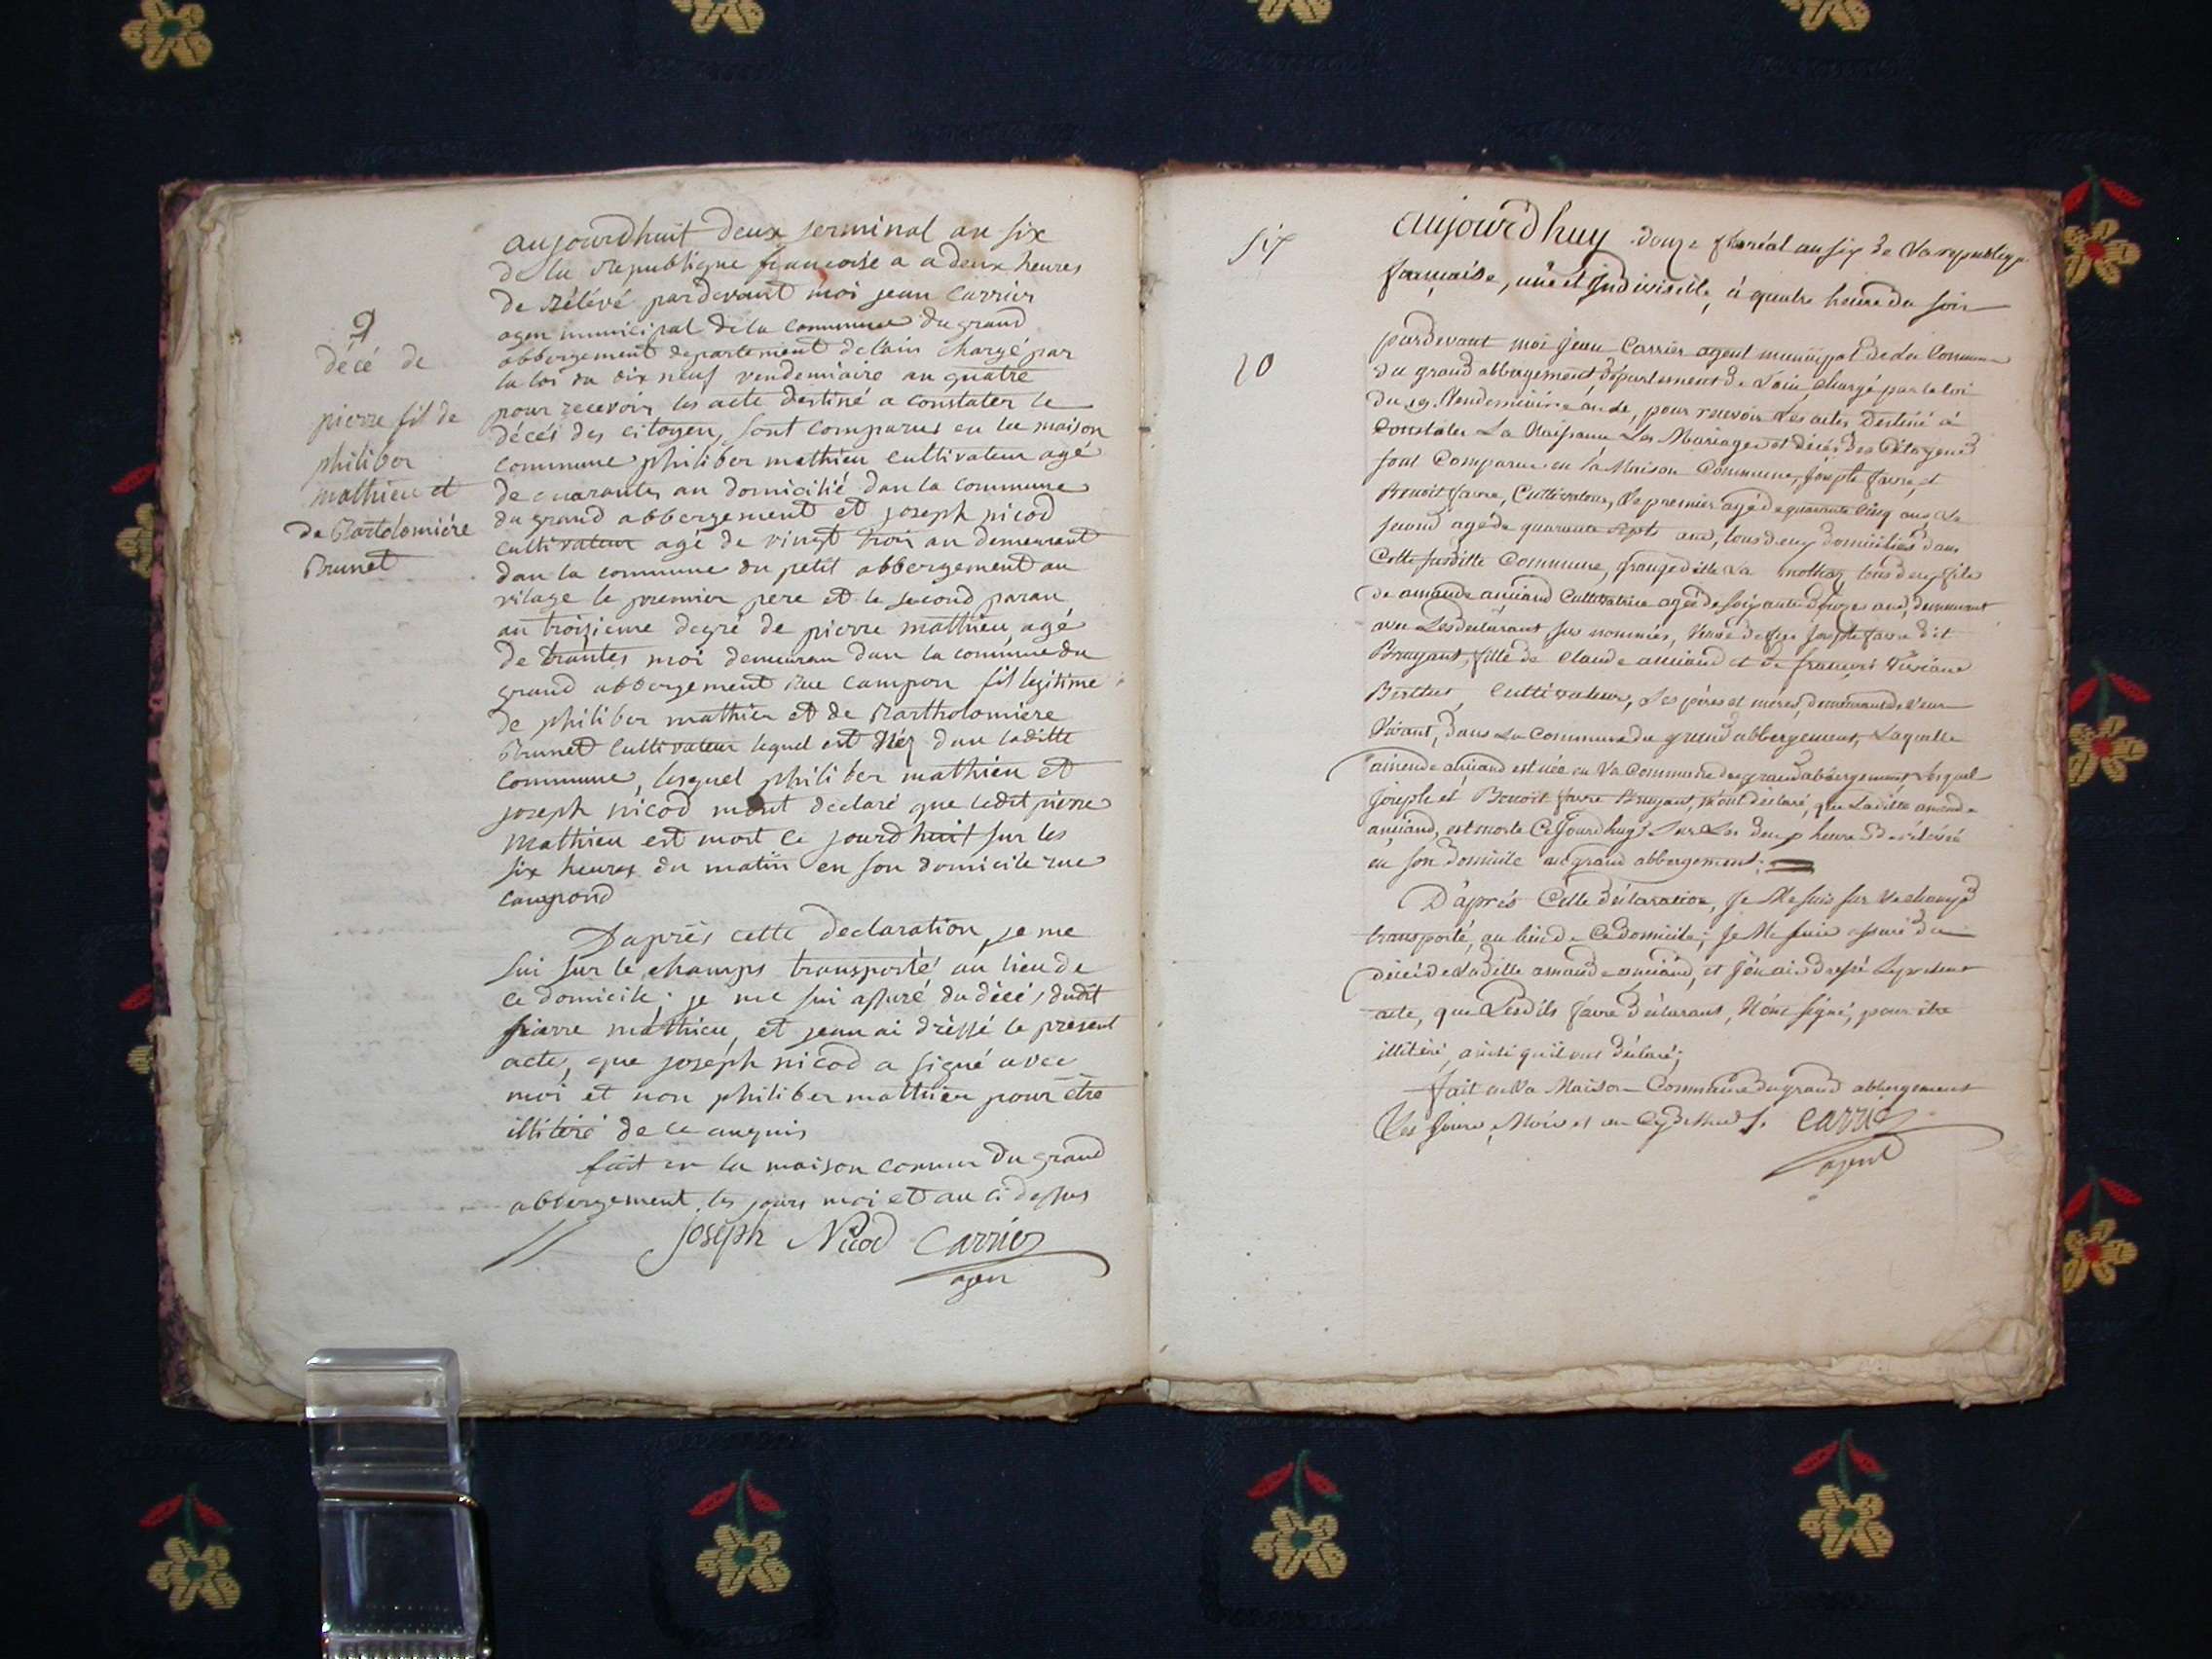 9
décé de
pierre fil de
philiber
mathieu et
de Bartolomiére
Brunet
aujourdhuit deux germinal an six
de la republique francoise a a deux heures
de rélévé pardevant moi jean Carrier
agen municipal de la commune du grand
abbergement departement de lain chargé par
la loi du dix neuf vendemiaire an quatre
pour recevoir les acte destiné a constater le
décés des citoyen, sont comparus en la maison
commune philiber mathieu cultivateur agé
de quarantes an domicilié dan la commune
du grand abbergement et joseph nicod
cultivateur agé de vingt trois an demeurant
dan la commune du petit abbergement au
vilage le premier pere et le second paran
au troisieme degré de pierre mathieu agé
de trantes moi demeuran dan la commune du
grand abbergement rue campon fil legitime
de philiber mathieu et de Bartholomiere
Brunet Cultivateur lequel est néz dan laditte
commune, lesquel philiber mathieu et
joseph nicod mont declaré que ledit pierre
mathieu est mort ce jourdhuit sur les
six heures du matin en son domicile rue
campond
Daprés cette declaration, je me
sui sur le champs transporté au lieu de
ce domicile; je me sui assuré du décé, dudit
pierre mathieu, et jennai dréssé le present
acte, que joseph nicod a signé avec
moi et non philiber mathieu pour être
illitéré de ce anquis
fait en la maison commun du grand
abbergement les jours moi et an ci dessus
joseph Nicod Carrier
agen
six
10
aujourdhuy douze floréal an six de la republiq.
française, une et Indivisible, à quatre heure du soir
pardevant moi Jean Carrier agent municipal de la Commune
du grand abbergement département de Lain, chargé par la loi
du 19. Vendemiaire an 4e, pour recevoir Les actes Destiné à
Constater La Naissance Les Mariages et décés des Citoyens
sont Comparu en la Maison Commune, Joseph favre, et
Benoit favre, Cultivateurs, Le premier agé de quarante Cinq ans Le
second agé de quarante septs ans, tous deux domiciliés dans
Cette susditte Commune, grange ditte La tous deux fils
de amande anciand Cultivatrice agée de soixante douze ans, demeurant
avec Les déclarant sus nommés, Veuve de feu Joseph favre dit
Bruyant, fille de Claude anciand et de
Cultivateur, Ses péres et méres, demeurant de Leur
Vivant, dans La Commune du grand abbergement, Laquelle
amende anciand est née en La Commune du grand abbergement, lesquel
Joseph et Benoit favre Bruyant, m'ont déclaré, que Laditte amande
anciand, est morte Cejourdhuy Sur Les deux heures de rélévée
en son domicile au grand abbergement;
D'aprés Cette déclaration, Je Me suis sur Le champs
transporté, au lieu de Ce domicile; Je Me suis assuré du
décé de Laditte amande anciand, et J'en ai dressé Le présent
acte, que Lesdits favre déclarant, N'ont signé, pour être
illitéré, ainsi qu'il ont déclaré;
fait en La Maison Commune du grand abbergement
Les Jours, Mois et an Cydessus Carrier
agent